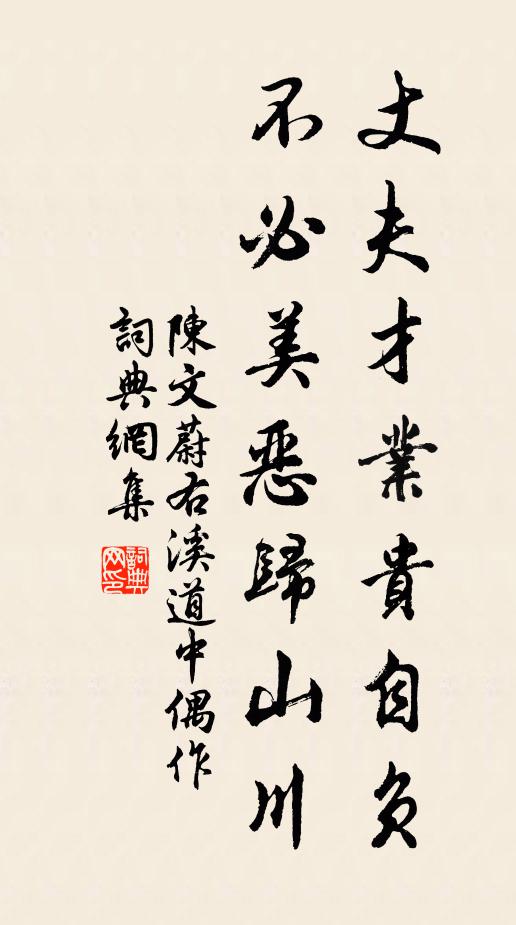 丈夫才業貴自負
不必美惡歸山川
陳文蔚右溪道中偶作
詞典網集
詞典网印